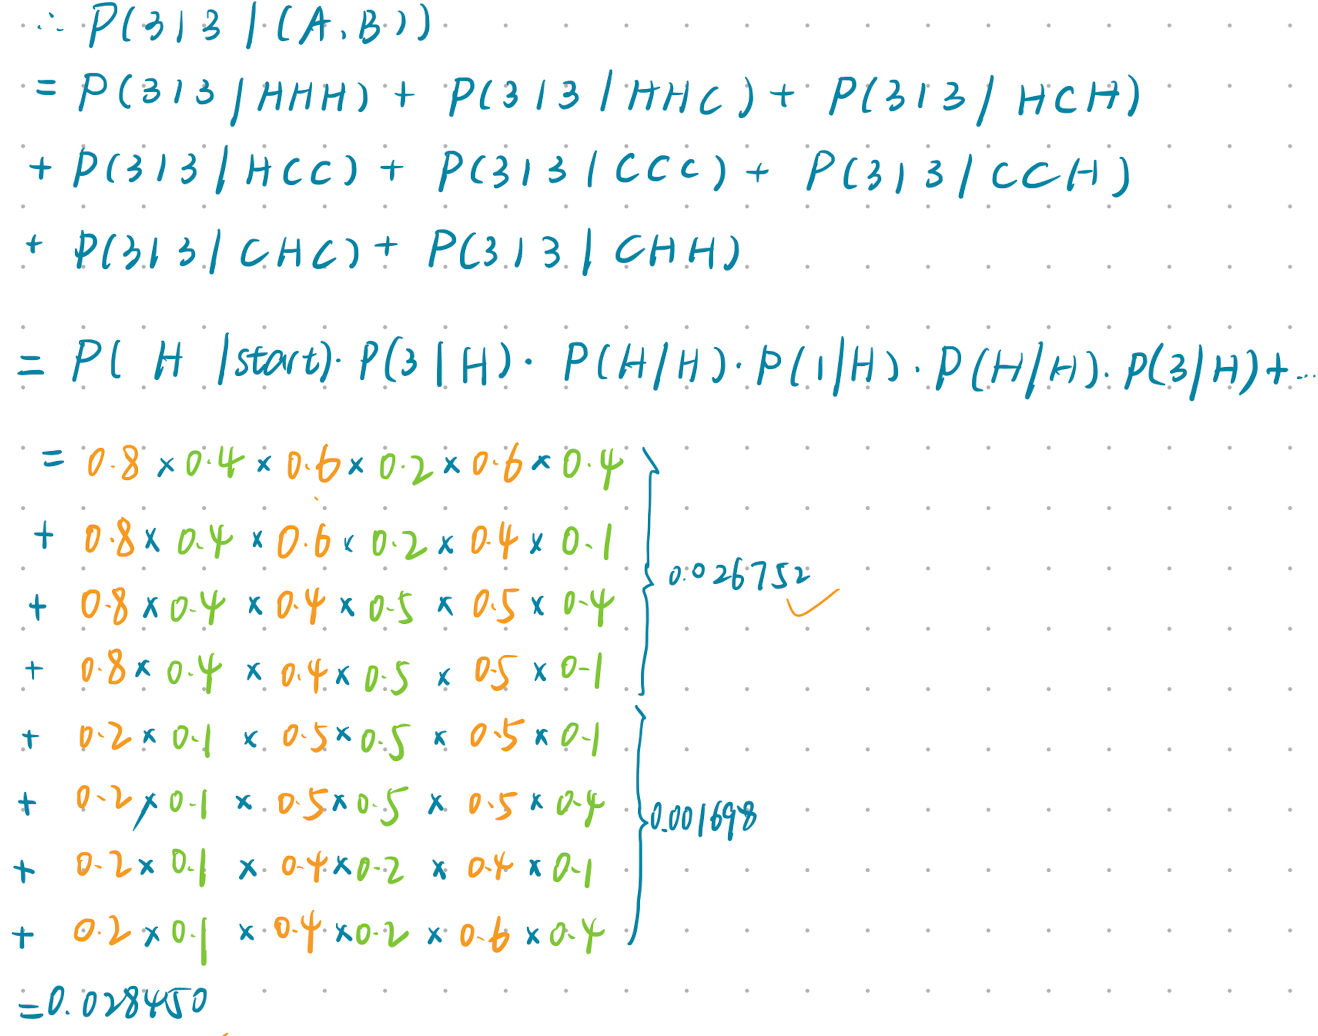 ∴ P(313 | (A,B))
= P(313 | HHH) + P(313 | HHC) + P(313 | HCH)
+ P(313 | HCC) + P(313 | CCC) + P(313 | CCH)
+ P(313 | CHC) + P(313 | CHH)
= P( H | start) · P(3 | H) · P(H/H) · P(1|H) · P(H/H) · P(3|H) + ...
= 0.8 × 0.4 × 0.6 × 0.2 × 0.6 × 0.4
+ 0.8 × 0.4 × 0.6 × 0.2 × 0.4 × 0.1
0.026752 ✓
+ 0.8 × 0.4 × 0.4 × 0.5 × 0.5 × 0.4
+ 0.8 × 0.4 × 0.4 × 0.5 × 0.5 × 0.1
+ 0.2 × 0.1 × 0.5 × 0.5 × 0.5 × 0.1
+ 0.2 × 0.1 × 0.5 × 0.5 × 0.5 × 0.4
0.001698
+ 0.2 × 0.1 × 0.4 × 0.2 × 0.4 × 0.1
+ 0.2 × 0.1 × 0.4 × 0.2 × 0.6 × 0.4
= 0.028450